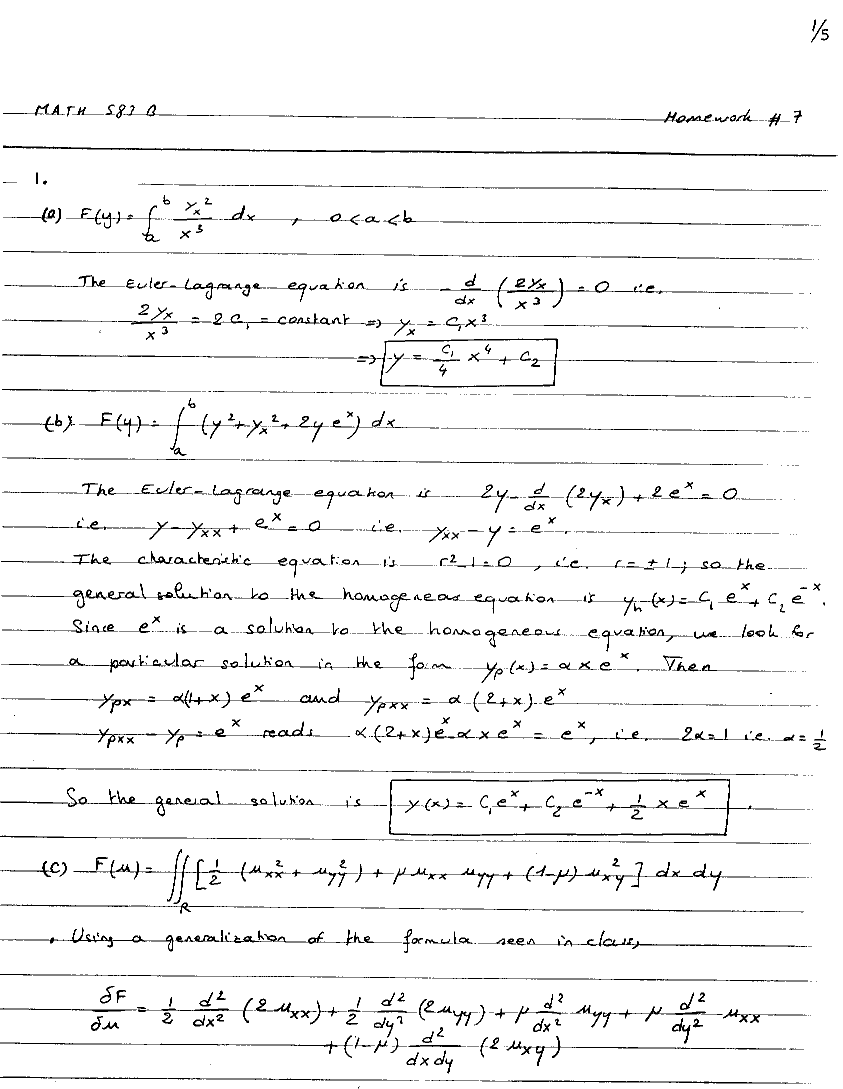 1/5
MATH 583 B Homework # 7
1.
(a) F(y) = ∫_a^b y_x^2 / x^3 dx , 0 < a < b
The Euler-Lagrange equation is - d/dx (2y_x / x^3) = 0 i.e.
2y_x / x^3 = 2 C_1 = constant => y_x = C_1 x^3
=> y = C_1/4 x^4 + C_2
(b) F(y) = ∫_a^b (y^2 + y_x^2 + 2y e^x) dx
The Euler-Lagrange equation is 2y - d/dx (2y_x) + 2e^x = 0
i.e. y - y_xx + e^x = 0 i.e. y_xx - y = e^x.
The characteristic equation is r^2 - 1 = 0 , i.e. r = ± 1 ; so the
general solution to the homogeneas equation is y_h (x) = C_1 e^x + C_2 e^-x.
Since e^x is a solution to the homogeneous equation, we look for
a particular solution in the form y_p(x) = α x e^x. Then
y_px = α(1+x) e^x and y_pxx = α (2+x) e^x
y_pxx - y_p = e^x reads α(2+x)e^x - α x e^x = e^x, i.e. 2α = 1 i.e. α = 1/2
So the general solution is y(x) = C_1 e^x + C_2 e^-x + 1/2 x e^x .
(c) F(u) = ∫∫_R [1/2 (u_xx^2 + u_yy^2) + μ u_xx u_yy + (1-μ) u_xy^2] dx dy
. Using a generalization of the formula seen in class,
δF/δu = 1/2 d^2/dx^2 (2 u_xx) + 1/2 d^2/dy^2 (2 u_yy) + μ d^2/dx^2 u_yy + μ d^2/dy^2 u_xx
+ (1-μ) d^2/dxdy (2 u_xy)